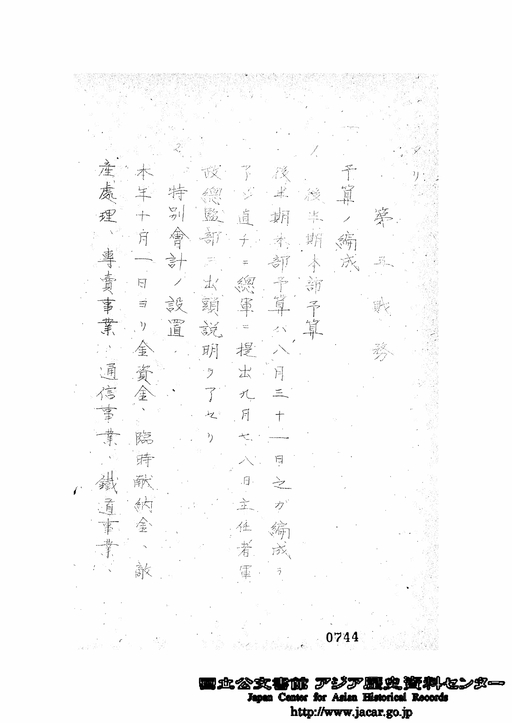 ノリ
第五 財務
一 予算ノ編成
1 後半期本部予算
後半期本部予算ハ八月三十一日之ガ編成ヲ
了シ直チニ總軍ニ提出九月七、八日主任者軍
政總監部ニ出頭説明ヲ了セリ
2 特別會計ノ設置
本年十月一日ヨリ金資金、臨時献納金、敵
産處理、專賣事業、通信事業、鐵道事業、
0744
国立公文書館 アジア歴史資料センター
Japan Center for Asian Historical Records
http://www.jacar.go.jp